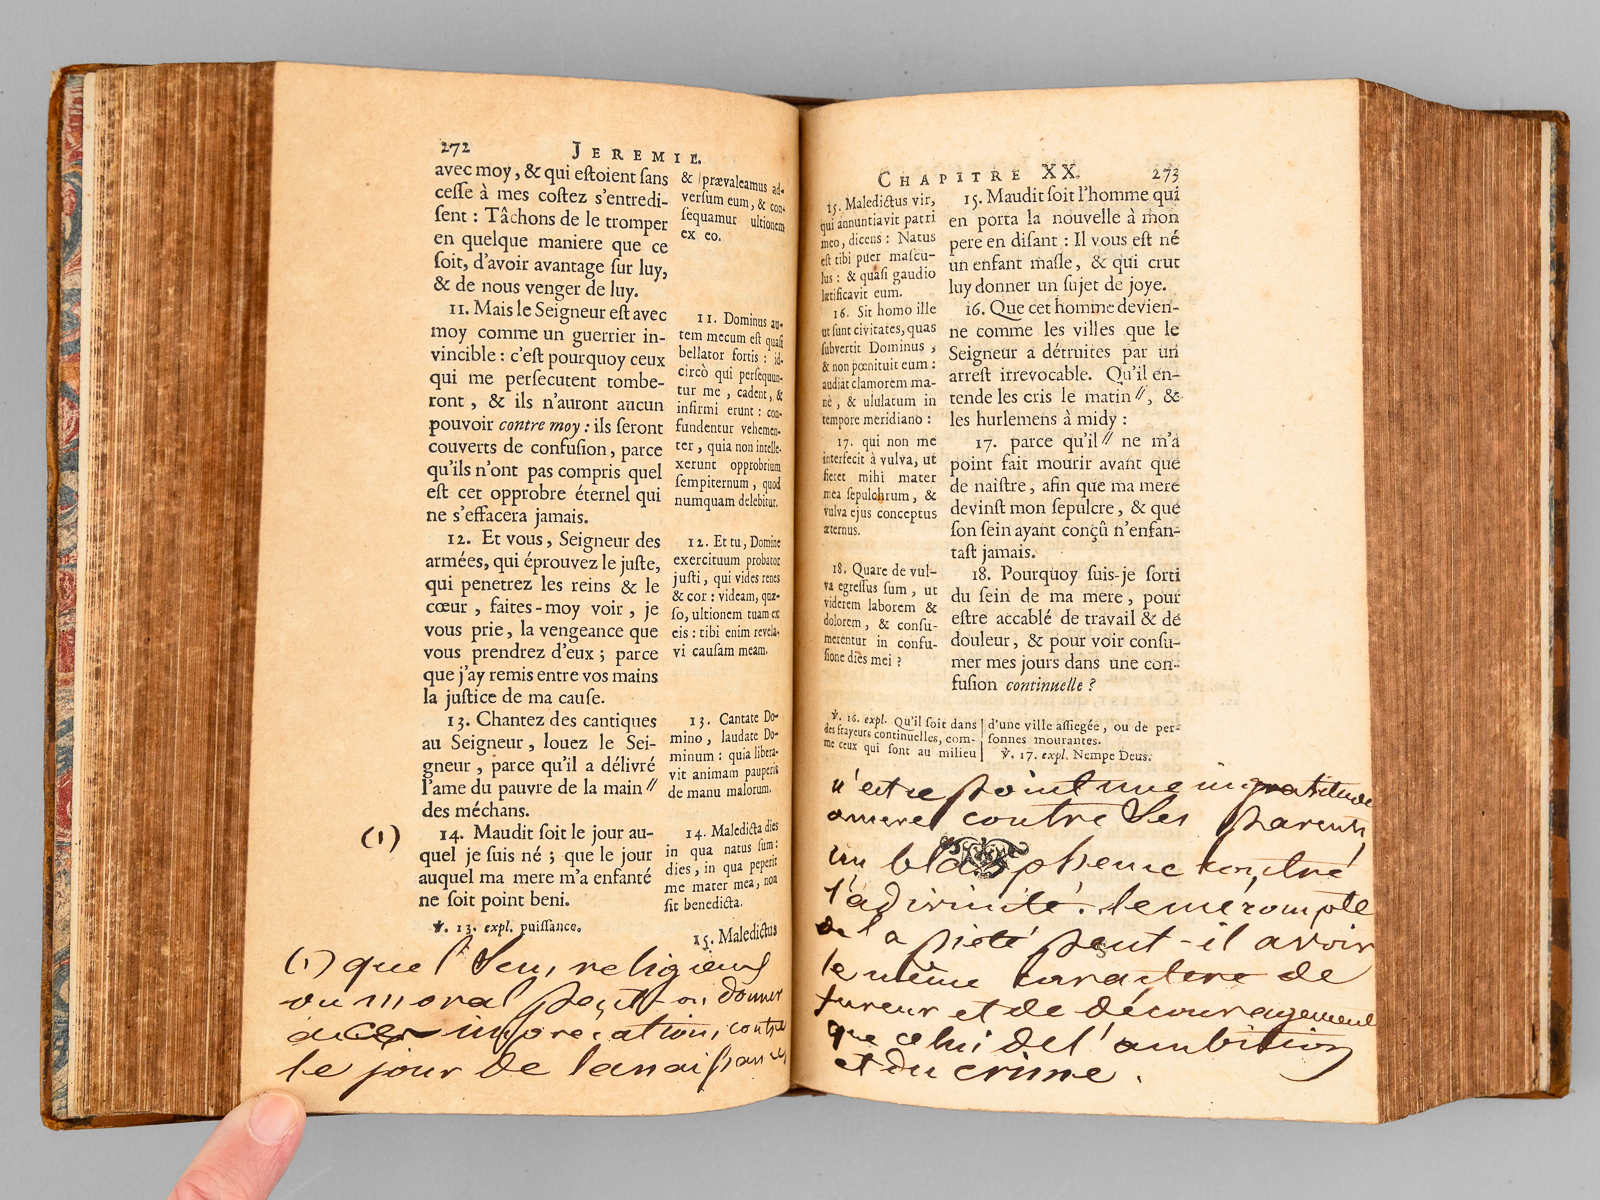 272
JEREMIE.
avec moy, & qui eſtoient ſans
ceſſe à mes coſtez s'entredi-
ſent : Tâchons de le tromper
en quelque maniere que ce
ſoit, d'avoir avantage ſur luy,
& de nous venger de luy.
11. Mais le Seigneur eſt avec
moy comme un guerrier in-
vincible : c'eſt pourquoy ceux
qui me perſecutent tombe-
ront, & ils n'auront aucun
pouvoir contre moy : ils ſeront
couverts de confuſion, parce
qu'ils n'ont pas compris quel
eſt cet opprobre éternel qui
ne s'effacera jamais.
12. Et vous, Seigneur des
armées, qui éprouvez le juſte,
qui penetrez les reins & le
cœur, faites-moy voir, je
vous prie, la vengeance que
vous prendrez d'eux ; parce
que j'ay remis entre vos mains
la juſtice de ma cauſe.
13. Chantez des cantiques
au Seigneur, louez le Sei-
gneur, parce qu'il a délivré
l'ame du pauvre de la main //
des méchans.
(1)
14. Maudit ſoit le jour au-
quel je ſuis né ; que le jour
auquel ma mere m'a enfanté
ne ſoit point beni.
& prævaleamus ad-
verſum eum, & con-
ſequamur ultionem
ex eo.
11. Dominus au-
tem mecum eſt quaſi
bellator fortis : id-
circò qui perſequun-
tur me, cadent, &
infirmi erunt : con-
fundentur vehemen-
ter, quia non intelle-
xerunt opprobrium
ſempiternum, quod
numquam delebitur.
12. Et tu, Domine
exercituum probator
juſti, qui vides renes
& cor : videam, quæ-
ſo, ultionem tuam ex
eis : tibi enim revela-
vi cauſam meam.
13. Cantate Do-
mino, laudate Do-
minum : quia libera-
vit animam pauperis
de manu malorum.
14. Maledicta dies
in qua natus ſum :
dies, in qua peperit
me mater mea, non
ſit benedicta.
℣. 13. expl. puiſſance.
15. Maledictus
(1) quel Sens religieux
ou moral peut-on donner
à ces imprecations contre
le jour de la naissance
CHAPITRE XX.
273
15. Maledictus vir,
qui annuntiavit patri
meo, dicens : Natus
eſt tibi puer maſcu-
lus : & quaſi gaudio
lætificavit eum.
16. Sit homo ille
ut ſunt civitates, quas
ſubvertit Dominus,
& non pœnituit eum :
audiat clamorem ma-
nè, & ululatum in
tempore meridiano :
17. qui non me
interfecit à vulva, ut
fieret mihi mater
mea ſepulchrum, &
vulva ejus conceptus
æternus.
18. Quare de vul-
va egreſſus ſum, ut
viderem laborem &
dolorem, & conſu-
merentur in confu-
ſione dies mei ?
15. Maudit ſoit l'homme qui
en porta la nouvelle à mon
pere en diſant : Il vous eſt né
un enfant maſle, & qui crut
luy donner un ſujet de joye.
16. Que cet homme devien-
ne comme les villes que le
Seigneur a détruites par un
arreſt irrevocable. Qu'il en-
tende les cris le matin //, &
les hurlemens à midy :
17. parce qu'il // ne m'a
point fait mourir avant que
de naiſtre, afin que ma mere
devinſt mon ſepulcre, & que
ſon ſein ayant conçû n'enfan-
taſt jamais.
18. Pourquoy ſuis-je ſorti
du ſein de ma mere, pour
eſtre accablé de travail & de
douleur, & pour voir conſu-
mer mes jours dans une con-
fuſion continuelle ?
℣. 16. expl. Qu'il ſoit dans
des frayeurs continuelles, com-
me ceux qui ſont au milieu
d'une ville aſſiegée, ou de per-
ſonnes mourantes.
℣. 17. expl. Nempe Deus.
n'est ce point une ingratitude
amere contre Ses parents,
un blaspheme contre
la divinité. le mecompte
de la piété peut-il avoir
le même caractere de
fureur et de découragement
que celui de l'ambition
et du crime.